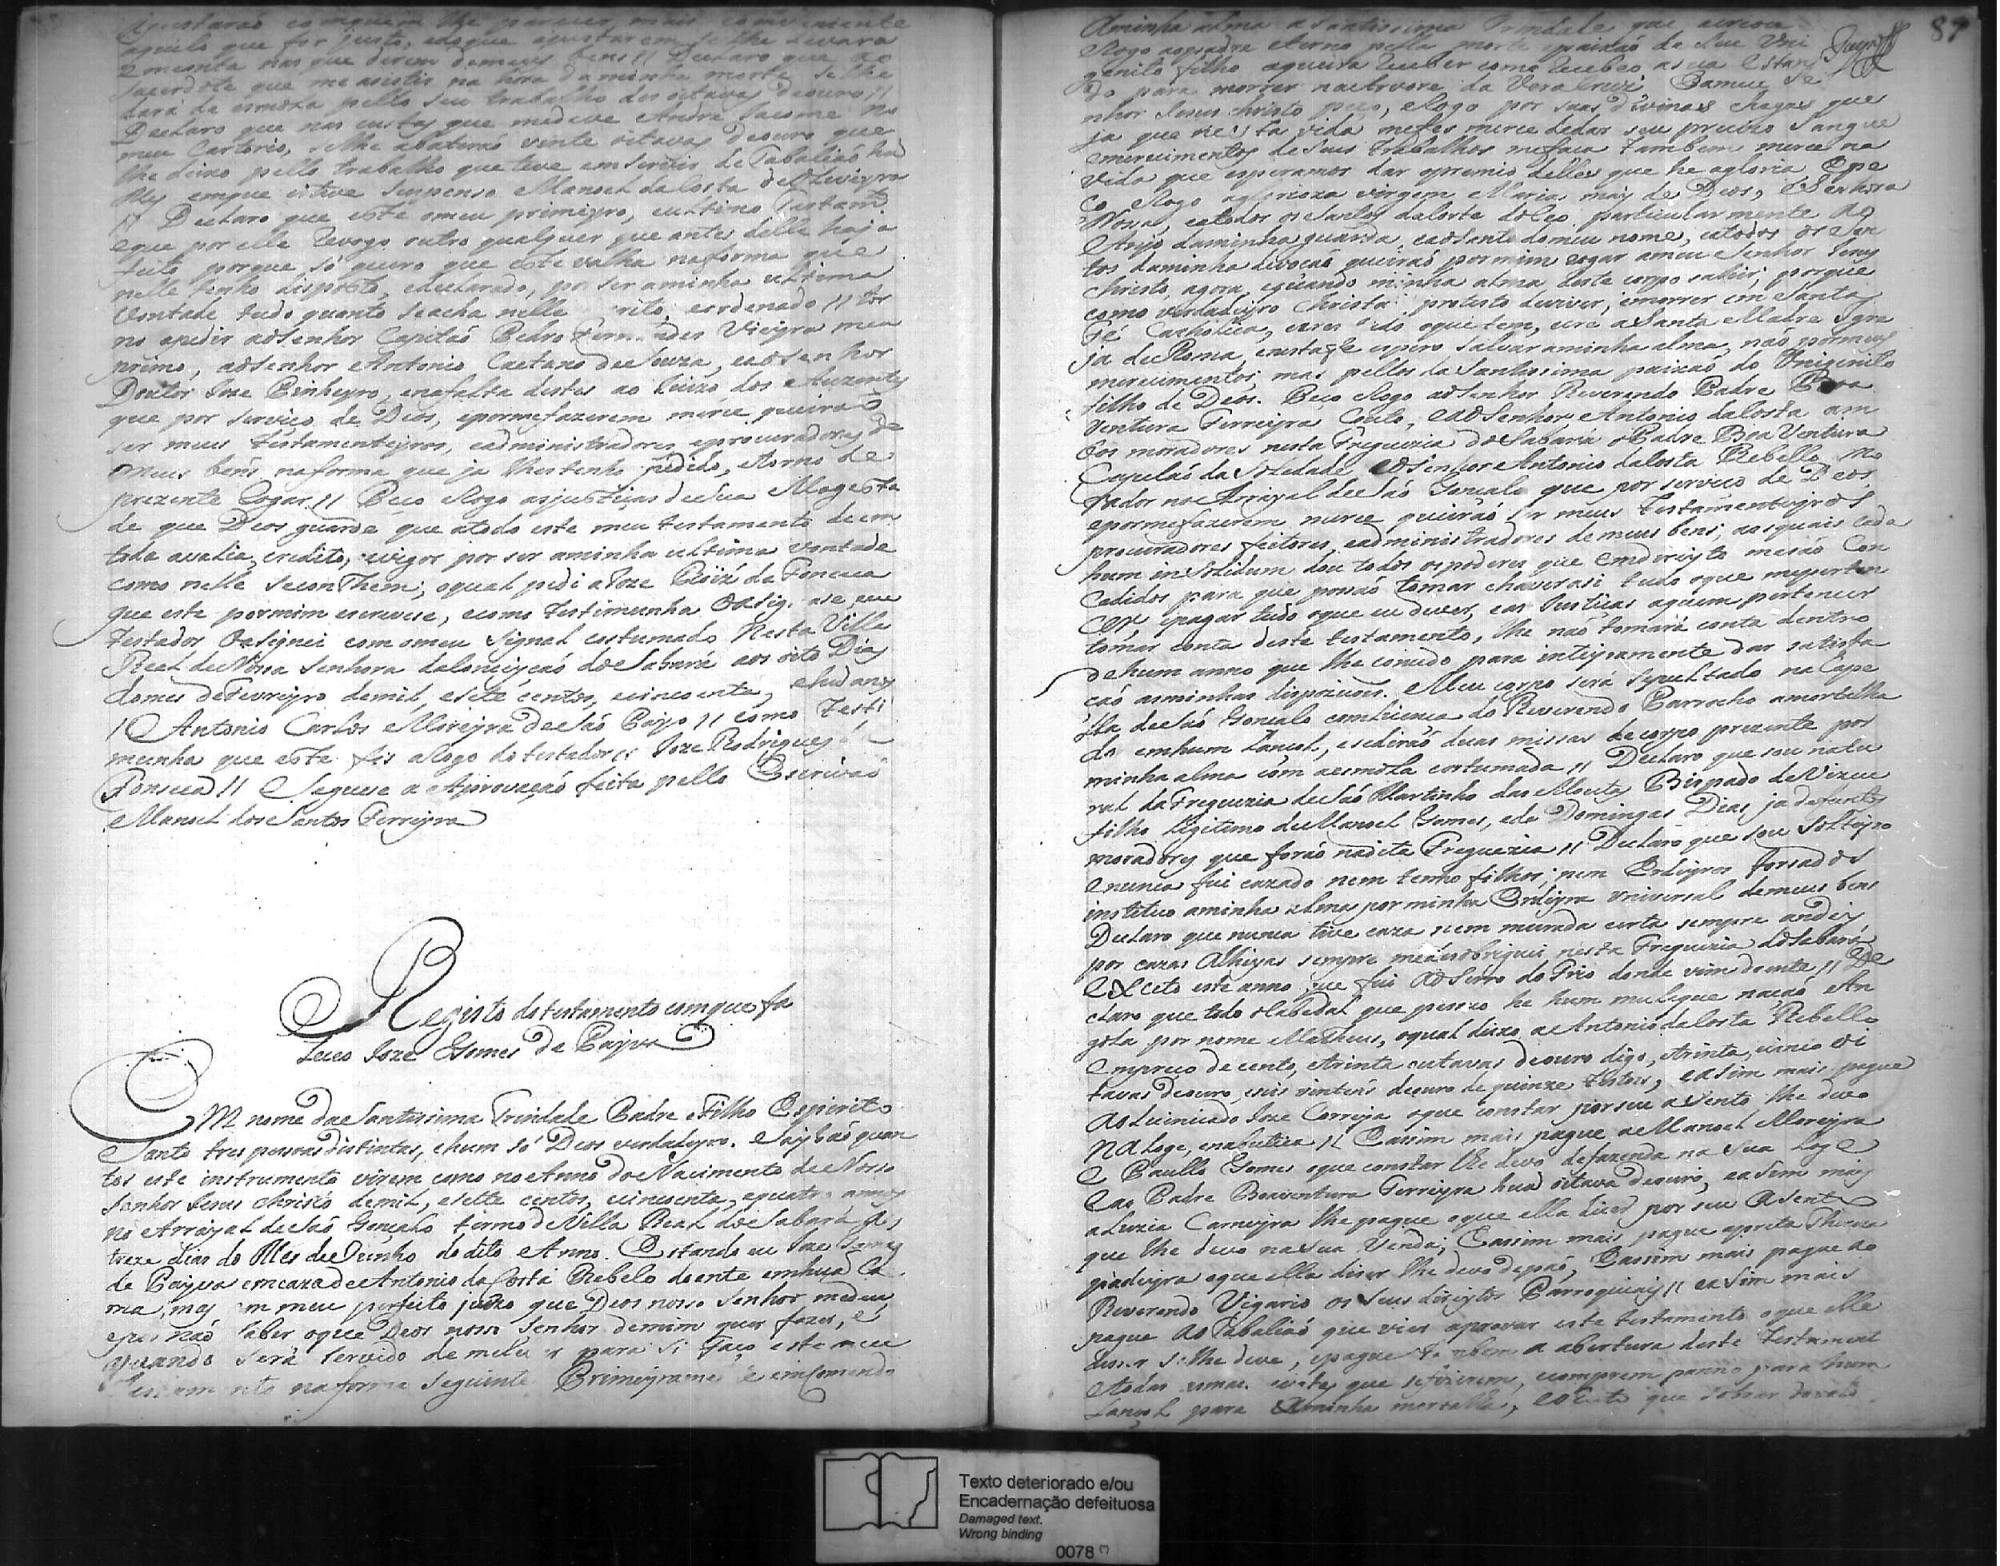 Ajustaraõ comquem lhe parecer mais comveniente
aquilo que for justo, edoque ajustarem selhe levara
emconta nas que derem demeus bens // Declaro que ao
Sacerdote que me asistir na hora daminha morte selhe
dará de esmola pello seu trabalho des oitavas deouro //
Declaro que nas custas que medeve André Jacome no
meu Cartorio, selhe abateraõ vinte oitavas deouro que
lhe deixo pello trabalho que teve em servir de Tabaliaõ hũ
Mes emque estive suspenso Manoel da Costa de Oliveyra
// Declaro que este omeu primeyro, eultimo Testam.
eque por elle revogo outro qualquer que antes delle haja
feito porque só quero que este valha naforma que
nelle tenho disposto, edeclarado, por ser aminha ultima
Vontade tudo quanto seacha nelle rito, eordenado // tor
no apedir aoSenhor Capitaõ Pedro Fern des Vieyra meu
primo, aoSenhor Antonio Caetano deSouza, eaoSenhor
Doutor Joze Pinheyro, enafalta destes ao Juizo dos Auzentes
que por serviço de Deos, epormefazerem merce queiraõ
ser meus testamenteyros, eadministradores, eprocuradores de
meus bens naforma que ja lhestenho pedido, etorno de
prezente Rogar // Peço eRogo asjustiças deSua Magesta
de que Deos guarde que atodo este meu testamento deem
toda avalia, credito, evigor por ser aminha ultima vontade
como nelle seconThem; oqual pedi aJoze Roiz da Fonceca
que este pormim escrevese, ecomo testimunha asig. ase, eeu
Testador asignei com omeu Signal costumado Nesta Villa
Real deNossa Senhora daConceyçaõ doSabará aos oito Dias
domes deFevreyro demil, esete centos, ecincoenta, ehũ anos
// Antonio Carlos Moreyra deSaõ Payo // como Testi
munha que esta fis aRogo dotestador // Joze Rodrigues
Fonseca // Seguese a Aprovaçaõ feita pello Escrivaõ
Manoel dos Santos Ferreyra
Registo dotestamento comque fa
leceo Joze Gomes de Payva
EM nome da Santissima Trindade Padre eFilho Espirito
Santo tres pessoas distintas, ehum só Deos verdadeyro. Saybaõ quan
tos este instrumento virem como no Anno do Nacimento de Nosso
Senhor Jesus Christo demil, esette centos, ecincoenta, equatro annos
no Arrayal deSaõ Gonçalo termo deVilla Real do Sabará aos
treze dias do Mes deJunho do dito Anno. Estando eu Joze Gomes
de Payva emcaza de Antonio da Costa Rebelo doente emhuã Ca
ma, mas em meu perfeito juizo que Deos nosso Senhor medeu,
epor naõ saber oque Deos nosso Senhor demim quer fazer, e
quando será servido de me levar para si faço este meu
Testamento naforma seguinte Primeyramente emcomendo
87
Aminha alma aSantissima Trindade que acreou
eRogo aopadre eterno pella morte epaixaõ de Seu Uni
genito filho aqueira receber como recebeo asua estan
do para morrer naArvore da Vera Cruz, Eameu Se
nhor Jesus Christo peço, eRogo por suas divinas chagas que
ja que nesta vida mefes merce dedar seu preciozo sangue
emerecimentos deSeus trabalhos mefaça tambem merce na
vida que esperamos dar opremio delles que he agloria, Epe
ço eRogo agloriosa virgem Maria may de Deos, eSenhora
Nossa, eatodos osSantos daCorte doCeo particularmente ao
Anjo daminha guarda, eaoSanto domeu nome, eatodos os San
tos daminha devoçaõ queiraõ pormim rogar ameu Senhor Jesus
Christo agora, equando minha alma deste corpo sahir; porque
como verdadeyro Christaõ protesto deviver, emorrer em Santa
Fé Catholica, ecrer tudo oquetem, ecre aSanta Madre Igre
ja deRoma, enesta fé espero salvar aminha alma, naõ pormeus
merecimentos, mas pellos da Santissima paixaõ do Unigenito
filho de Deos. Peço eRogo aoSenhor Reverendo Padre Boa
Ventura Ferreyra Couto, eaoSenhor Antonio daCosta am
bos moradores nesta Freguezia doSabará oPadre BoaVentura
Capelaõ da Soledade, eoSenhor Antonio daCosta Rebello, mo
rador no Arrayal deSaõ Gonçalo que por serviço de Deos
epormefazerem merce queiraõ ser meus testamenteyros
procuradores feitores, eadministradores demeus bens, aosquais cada
hum inSolidum dou todos ospoderes que emdireyto mesaõ Con
cedidos para que possaõ tomar, haverasi tudo oque mepertem
cer, epagar tudo oque eu dever, eas Justiças aquem pertencer
tomar conta deste testamento, lhe naõ tomará conta dentro
dehum anno que lhe concedo para inteyramente dar satisfa
çaõ asminhas dispoziçoes. Meu corpo será sepultado na Cape
lla deSaõ Gonçalo comlicença do Reverendo Parrocho amortalha
do emhum lançol, esediraõ duas missas decorpo prezente por
minha alma com aesmola costumada // Declaro que sou natu
ral da Freguezia deSaõ Martinho das Moutas Bispado deVizeu
filho legitimo deManoel Gomes, ede Domingas Dias ja defuntos
moradores que foraõ nadita Freguezia // Declaro que sou Solteyro
enunca fui cazado nem tenho filhos, nem Erdeyros forsados
instetuo aminha alma por minha Erdeyra universal demeus bens
Declaro que nunca tive caza nem morada certa sempre andey
por cazas Alheyas sempre medesobriguei nesta Freguezia doSabará
eXceto este anno que fui aoSerro do Frio donde vim doente // De
claro que todo oCabedal que pessuo he hum muleque naçaõ An
gola por nome Matheus, oqual deixo aAntonio daCosta Rebello
empreço de cento, etrinta eutavas deouro digo, etrinta, ecinco oi
tavas deouro, eseis vintens deouro de quinze testois, easim mais pague
aoLicenciado Joze Correya oque constar porseu aSento lhe devo
na Loge, enabutica // Eassim mais pague aManoel Moreyra
e Paullo Gomes oque constar lhe devo defazenda na sua loge
eao Padre Boaventura Ferreyra huã oitava deouro, easim mais
aLuzia Carneyra lhe pague oque ella diser por seu aSento
que lhe devo nasua Venda; Eassim mais pague apreta Thereza
padeyra oque ella diser lhe devo depaõ, Eassim mais pague ao
Reverendo Vigario os seus direytos Parroquiais // easim mais
pague ao Tabaliaõ que vier aprovar este testamento oque elle
diser selhe deve, epague tambem a abertura deste testament
etodas asmais custas que sefizerem, ecomprem panno para hum
Lançol para aminha mortalha, eoresto que sobrar
Texto deteriorado e/ou
Encadernação defeituosa
Damaged text.
Wrong binding
0078